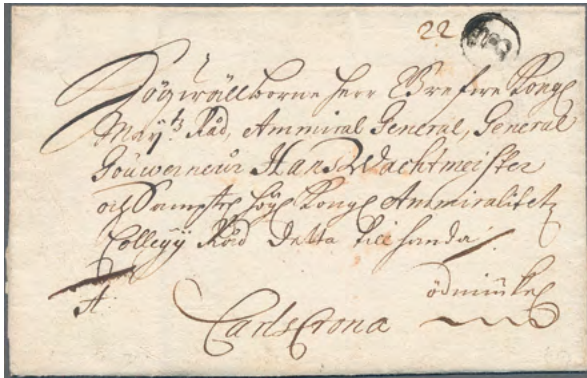 22
Högwällborne herr Grefwe Kongl
May:tz Råd, Ammiral General, General
Gouwerneur Hans Wachtmeister
och Samptl Högl Kongl Ammiralitetz
Collegij Råd Detta till handa
ödmiukel
A
CarlsCrona